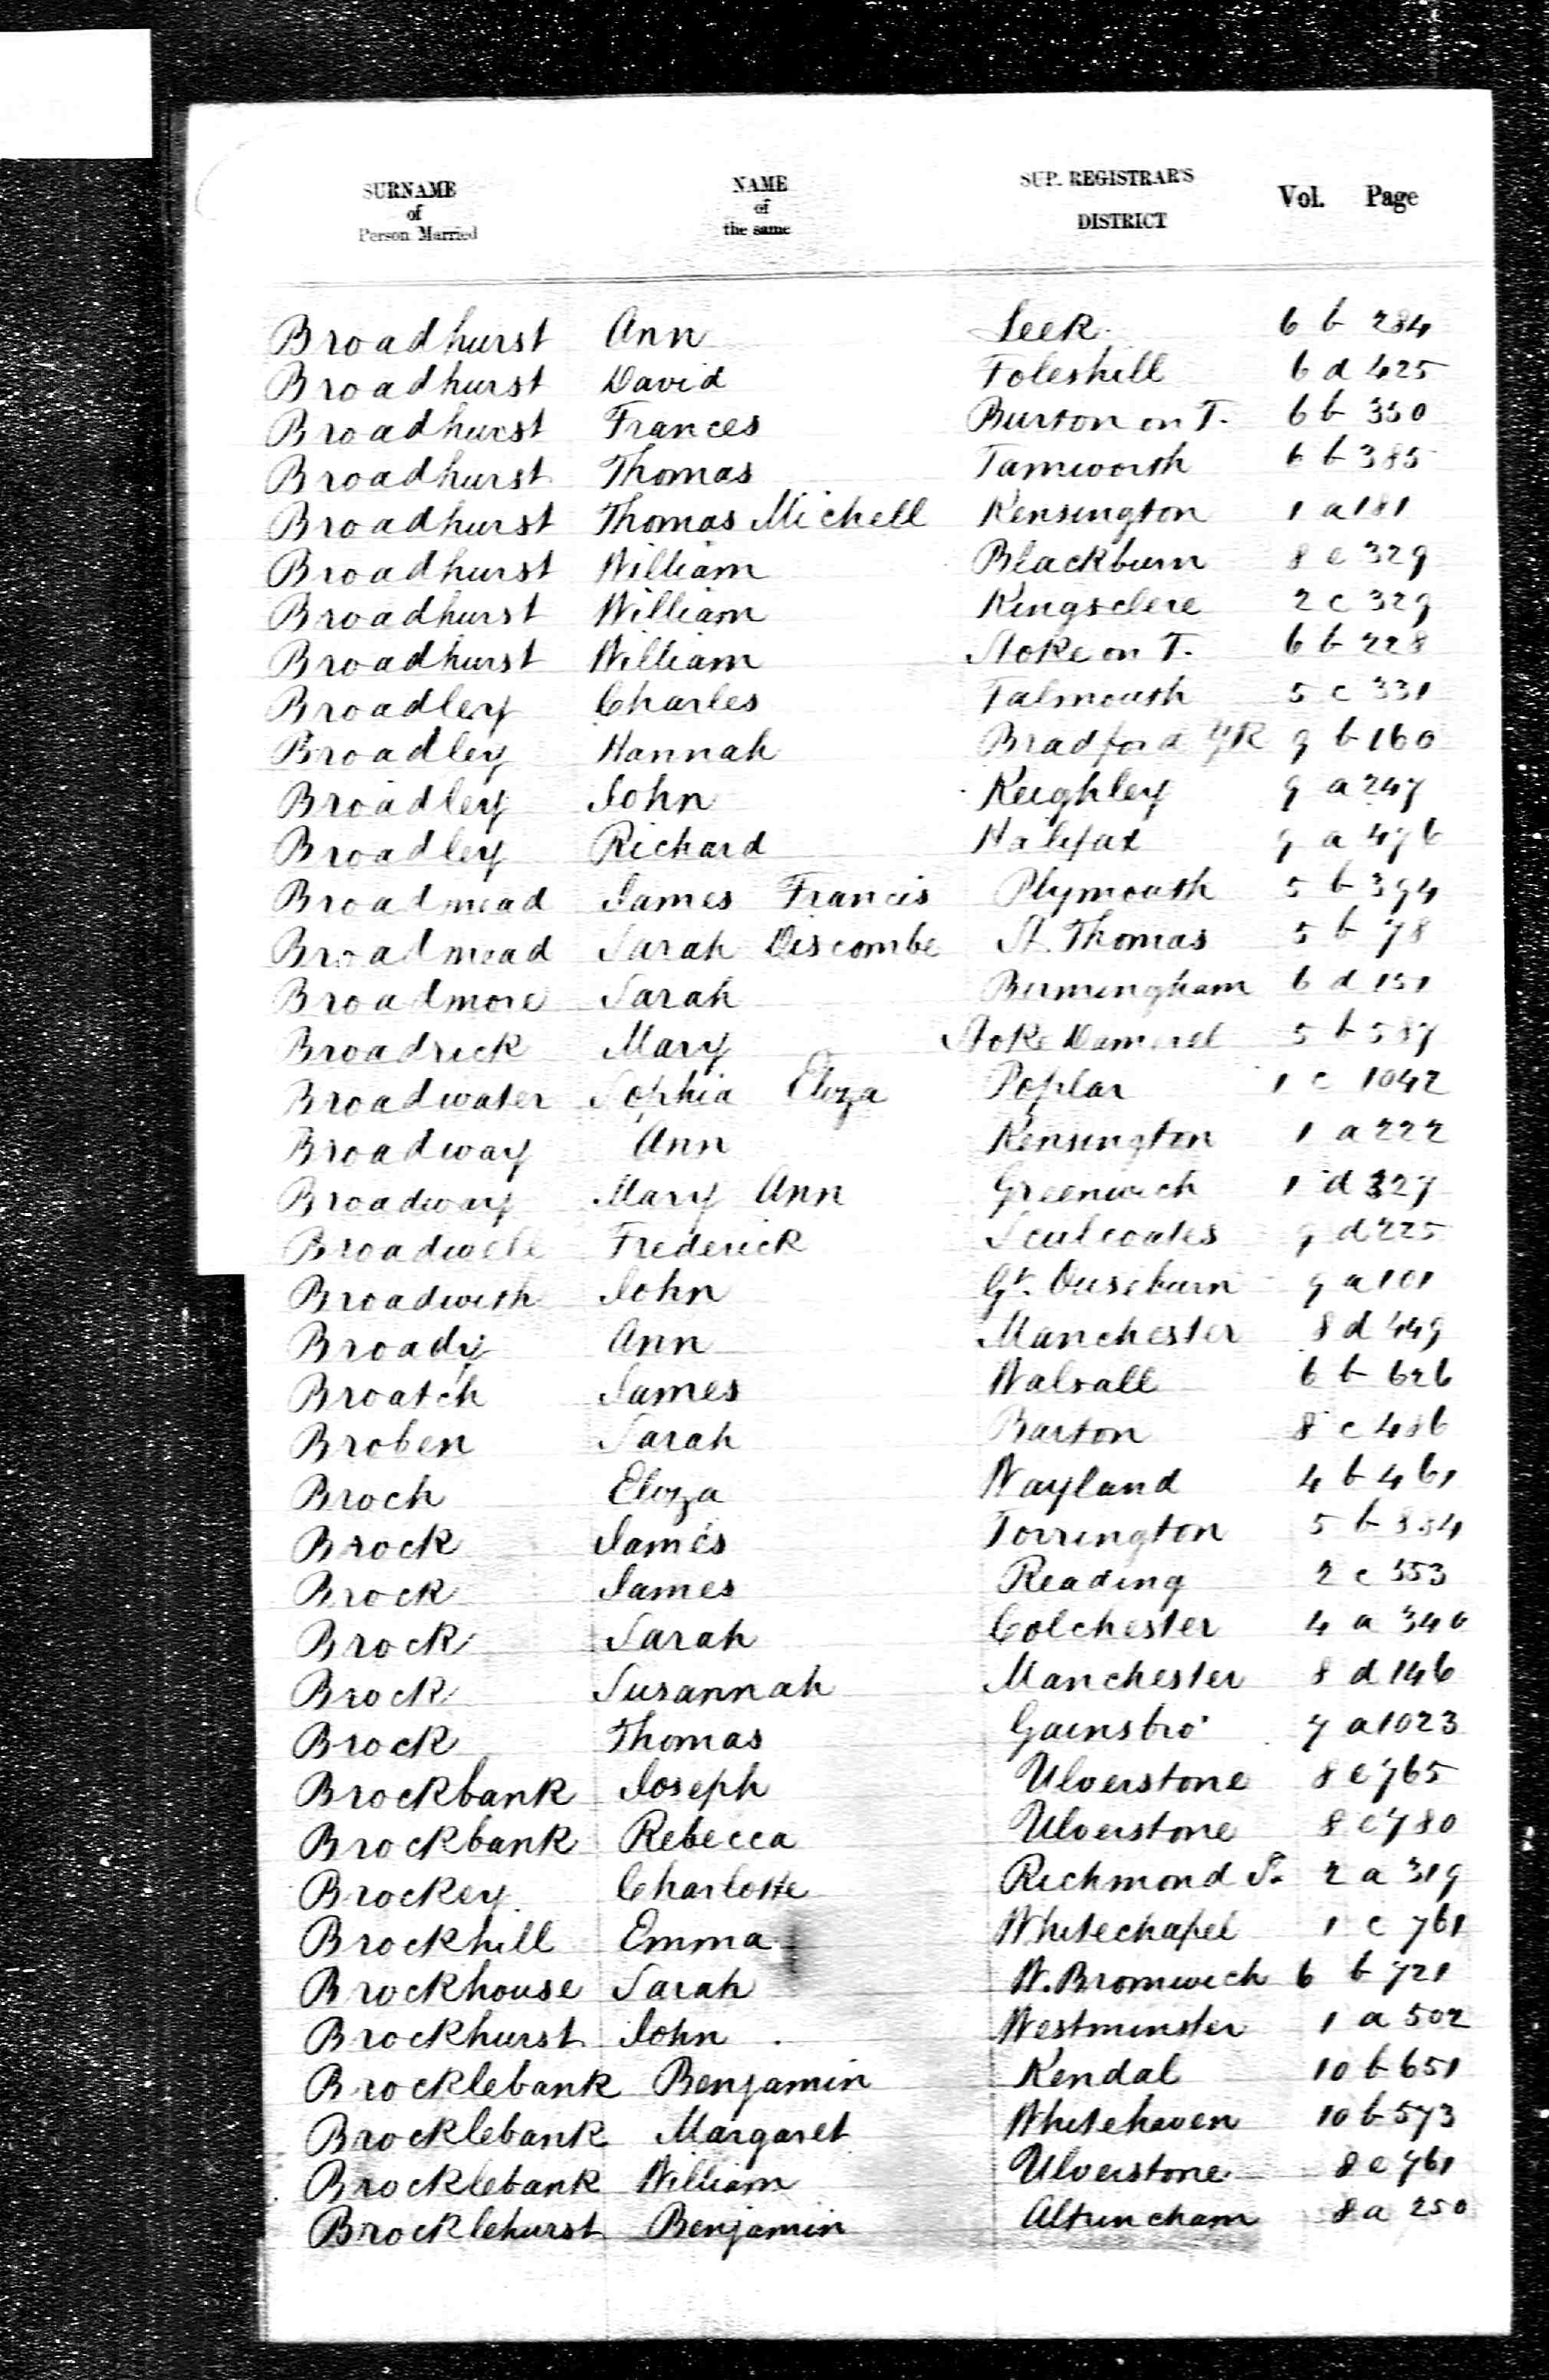 SURNAME of Person Married NAME of the same SUP. REGISTRAR'S DISTRICT Vol. Page
Broadhurst Ann Leek 6 b 284
Broadhurst David Foleshill 6 d 425
Broadhurst Frances Burton on T. 6 b 350
Broadhurst Thomas Tamworth 6 b 385
Broadhurst Thomas Michell Kensington 1 a 181
Broadhurst William Blackburn 8 e 329
Broadhurst William Kingsclere 2 c 329
Broadhurst William Stoke on T. 6 b 228
Broadley Charles Falmouth 5 c 331
Broadley Hannah Bradford YK 9 b 160
Broadley John Keighley 9 a 247
Broadley Richard Halifax 9 a 476
Broadmead James Francis Plymouth 5 b 394
Broadmead Sarah Discombe St. Thomas 5 b 78
Broadmore Sarah Birmingham 6 d 151
Broadrick Mary Stoke Damerel 5 b 587
Broadwater Sophia Eliza Poplar 1 c 1042
Broadway Ann Kensington 1 a 222
Broadway Mary Ann Greenwich 1 d 327
Broadwell Frederick Sculcoates 9 d 225
Broadwith John Gt. Ouseburn 9 a 101
Broady Ann Manchester 8 d 449
Broatch James Walsall 6 b 626
Broben Sarah Barton 8 c 486
Broch Eliza Wayland 4 b 461
Brock James Torrington 5 b 884
Brock James Reading 2 c 553
Brock Sarah Colchester 4 a 340
Brock Susannah Manchester 8 d 146
Brock Thomas Gainsbro' 7 a 1023
Brockbank Joseph Ulverstone 8 e 765
Brockbank Rebecca Ulverstone 8 e 780
Brockey Charlotte Richmond S. 2 a 319
Brockhill Emma Whitechapel 1 c 761
Brockhouse Sarah W. Bromwich 6 b 721
Brockhurst John Westminster 1 a 502
Brocklebank Benjamin Kendal 10 b 651
Brocklebank Margaret Whitehaven 10 b 573
Brocklebank William Ulverstone 8 e 761
Brocklehurst Benjamin Altrincham 8 a 250